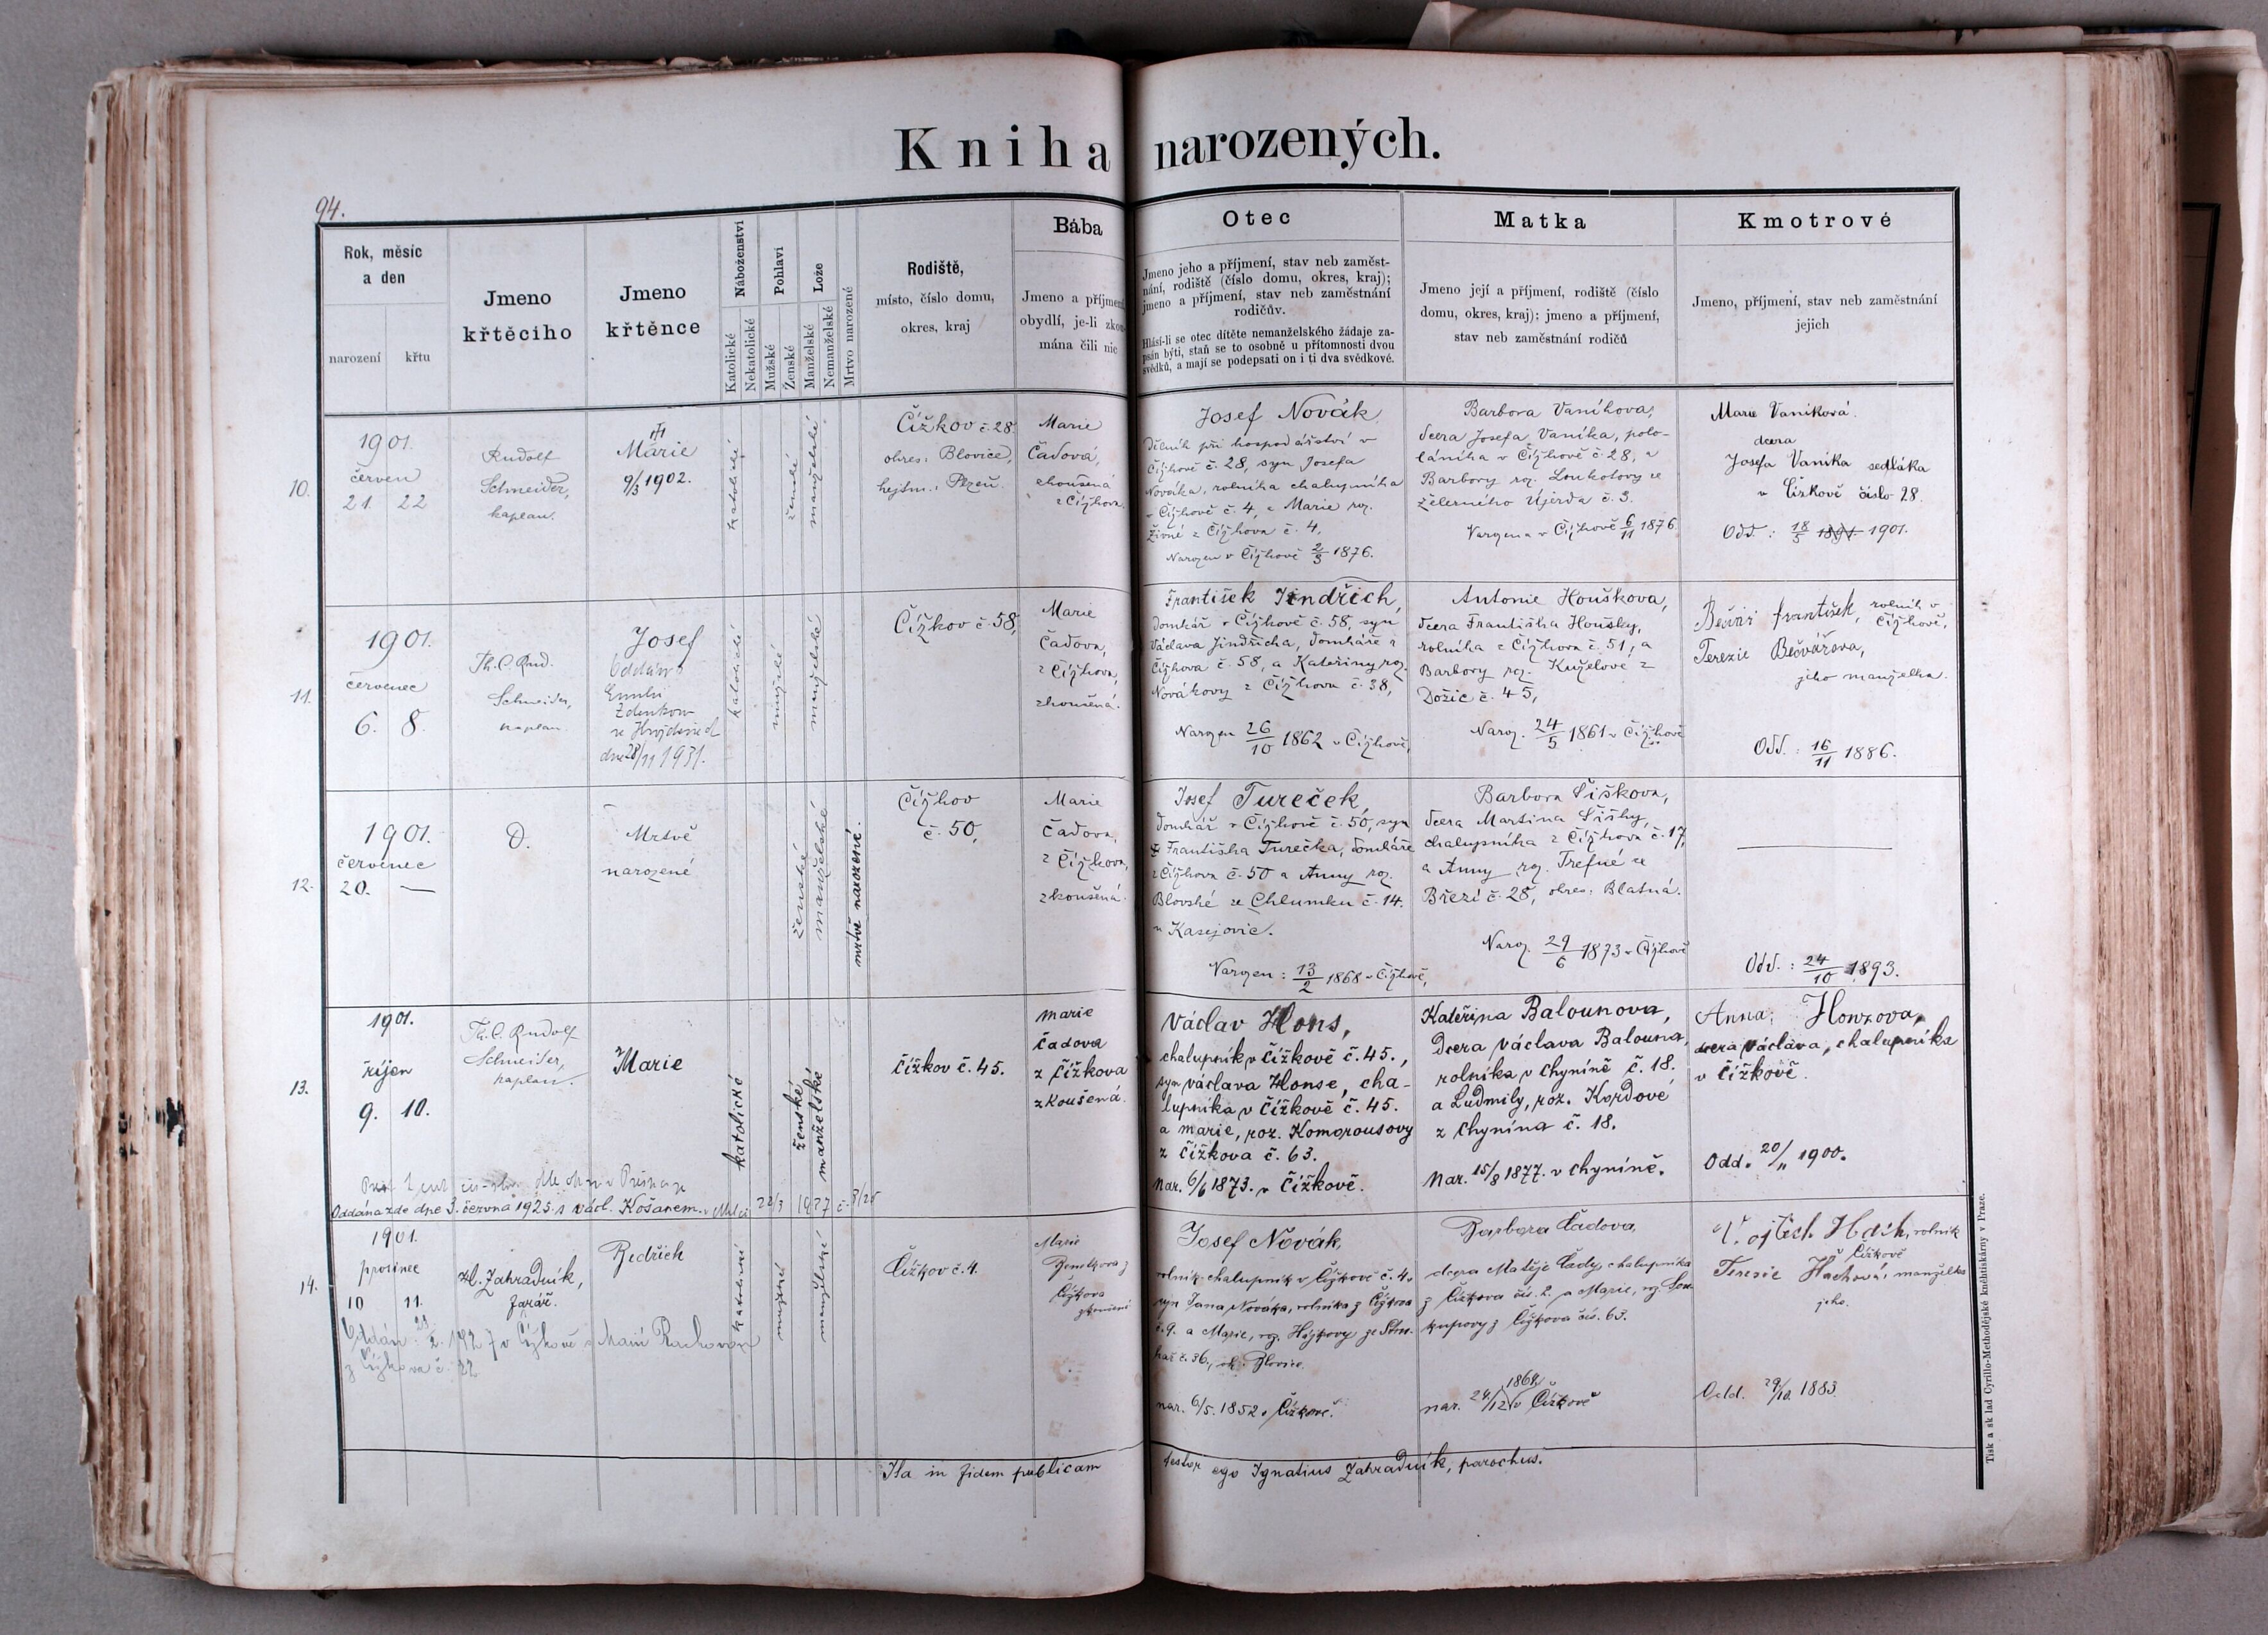 Kniha narozených.
94.
Rok, měsíc
a den
narození
křtu
Jmeno
křtěcího
Jmeno
křtěnce
Náboženství
Katolické
Nekatolické
Pohlaví
Mužské
Ženské
Lože
Manželské
Nemanželské
Mrtvo narozené
Rodiště,
místo, číslo domu,
okres, kraj
Bába
Jmeno a příjmení
obydlí, je-li zkou-
mána čili nic
Otec
Jmeno jeho a příjmení, stav neb zaměst-
nání, rodiště (číslo domu, okres, kraj);
jmeno a příjmení, stav neb zaměstnání
rodičův.
Hlásí-li se otec dítěte nemanželského žádaje za-
psán býti, staň se to osobně u přítomnosti dvou
svědků, a mají se podepsati on i ti dva svědkové.
Matka
Jmeno její a příjmení, rodiště (číslo
domu, okres, kraj); jmeno a příjmení,
stav neb zaměstnání rodičů
Kmotrové
Jmeno, příjmení, stav neb zaměstnání
jejich
10.
1901.
červen
21. 22
Rudolf
Schneider,
kaplan.
Marie
9/3 1902.
katolické
ženské
manželské
Čížkov č. 28.
okres: Blovice,
hejtm.: Plzeň.
Marie
Čadová,
zkoušená
z Čížkova.
Josef Novák
Dělník při hospodářství v
Čížkově č. 28, syn Josefa
Nováka, rolníka chalupníka
v Čížkově č. 4, a Marie roz.
Živné z Čížkova č. 4,
Narozen v Čížkově 2/3 1876.
Barbora Vaníkova,
dcera Josefa Vaníka, polo-
láníka v Čížkově č. 28, a
Barbory roz. Loukotovy ze
Želerného Újezda č. 3.
Narozena v Čížkově 6/11 1876.
Marie Vaniková.
dcera
Josefa Vanika sedláka
v Čížkově číslo 28.
Odd.: 18/5 1891 1901.
11.
1901.
červenec
6. 8.
Th. C. Rud.
Schneider,
kaplan
Josef
Oddán s
Zdenkou
dne 28/11 1931.
katolické
mužské
manželské
Čížkov č. 58,
Marie
Čadova,
z Čížkova,
zkoušená.
František Jindřich,
Domkář v Čížkově č. 58, syn
Václava Jindřicha, domkáře z
Čížkova č. 58, a Kateřiny roz.
Novákovy z Čížkova č. 38,
Narozen 26/10 1862 v Čížkově,
Antonie Houškova,
dcera Františka Houšky,
rolníka z Čížkova č. 51, a
Barbory roz. Kuželove z
Dožic č. 45,
Naroz. 24/5 1861 v Čížkově
František, rolník v
Čížkově,
Terezie Bečvářova,
jeho manželka.
Odd.: 16/11 1886.
12.
1901.
červenec
20. —
D.
Mrtvě
narozené
ženské
manželské
mrtvě narozené.
Čížkov
č. 50,
Marie
Čadova,
z Čížkova,
zkoušená.
Josef Tureček,
domkář v Čížkově č. 50, syn
Františka Turečka, domkáře
z Čížkova č. 50 a Anny roz.
Blovské ze Chlumku č. 14.
u Kasejovic.
Narozen: 13/2 1868 v Čížkově,
Barbora Šiškova,
dcera Martina Šišky,
chalupníka z Čížkova č. 17,
a Anny roz. Trefné ze
Březí č. 28, okres: Blatná.
Naroz. 29/6 1873 v Čížkově
Odd.: 24/10 1893.
13.
1901.
říjen
9. 10.
Th. C. Rudolf
Schneider,
kaplan.
Marie
katolické
ženské
manželské
Čížkov č. 45.
Marie
Čadova
z Čížkova
zkoušená.
Václav Hons,
chalupník v Čížkově č. 45.,
syn Václava Honse, cha-
lupníka v Čížkově č. 45.
a Marie, roz. Komorousovy
z Čížkova č. 63.
Nar. 6/6 1873. v Čížkově.
Kateřina Balounova,
Dcera Václava Balouna,
rolníka v Chyníně č. 18.
a Ludmily, roz. Kordové
z Chynína č. 18.
Nar. 15/8 1877. v Chyníně.
Anna Honzova,
dcera Václava, chalupníka
v Čížkově.
Odd. 20/11 1900.
Oddána zde dne 3. června 1925. s Václ. Košanem.
14.
1901.
prosinec
10 11.
H. Zahradník,
farář.
Bedřich
katolické
mužské
manželské
Čížkov č. 4.
Marie
Čížkova
Josef Novák,
rolník-chalupník v Čížkově č. 4.
syn Jana Nováka, rolníka z Čížkova
č. 9. a Marie, roz. Hájkovy ze
č. 36., ok. Blovice.
nar. 6/5. 1852 v Čížkově.
Barbora Čadova,
dcera Matěje Čady, chalupníka
z Čížkova čís. 2. a Marie, roz.
z Čížkova čís. 63.
nar. 24/12 1864 v Čížkově
Vojtěch Hach, rolník
v Čížkově
Terezie Hachová, manželka
jeho.
Odd. 29/10. 1883.
Oddán 23/2. 1927 v Čížkově s Marií
z Čížkova č.
Ita in fidem publicam testor ego Ignatius Zahradník, parochus.
Tisk a sklad Cyrillo-Methodějské knihtiskárny v Praze.